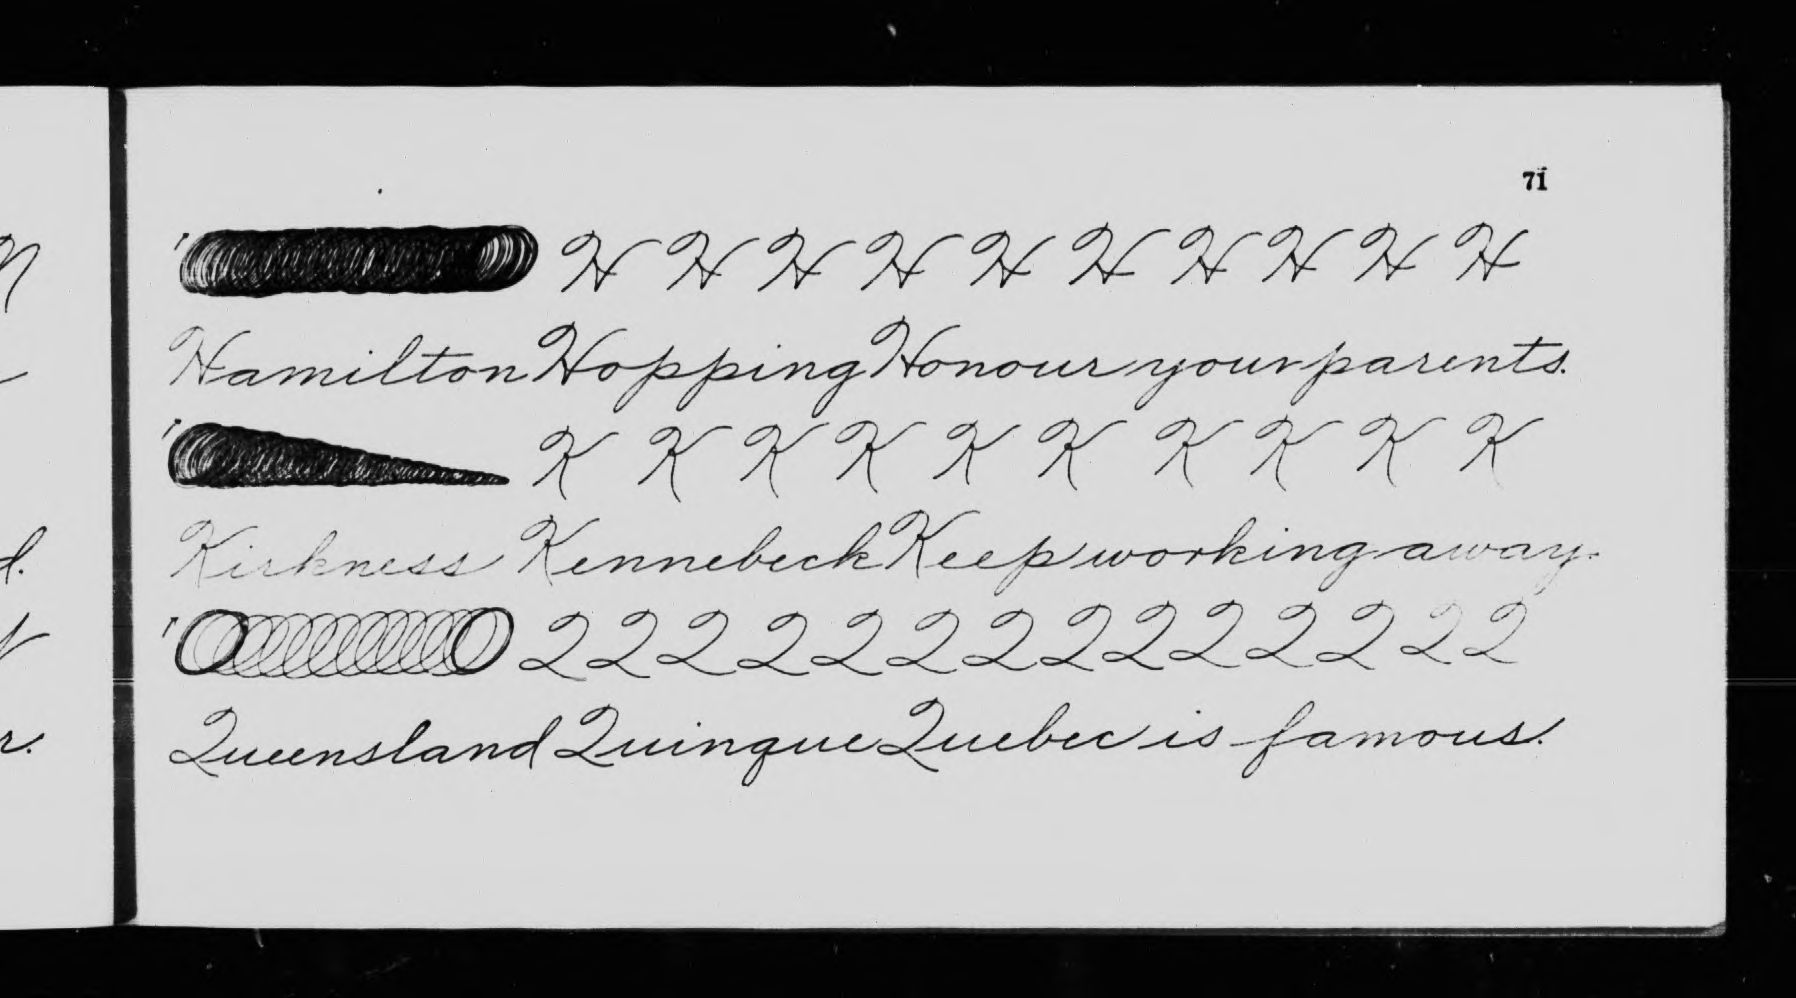 71
H H H H H H H H H H
Hamilton Hopping Honour your parents.
K K K K K K K K K K
Kirkness Kennebeck Keep working away.
Q Q Q Q Q Q Q Q Q Q Q Q Q Q
Queensland Quinque Quebec is famous.